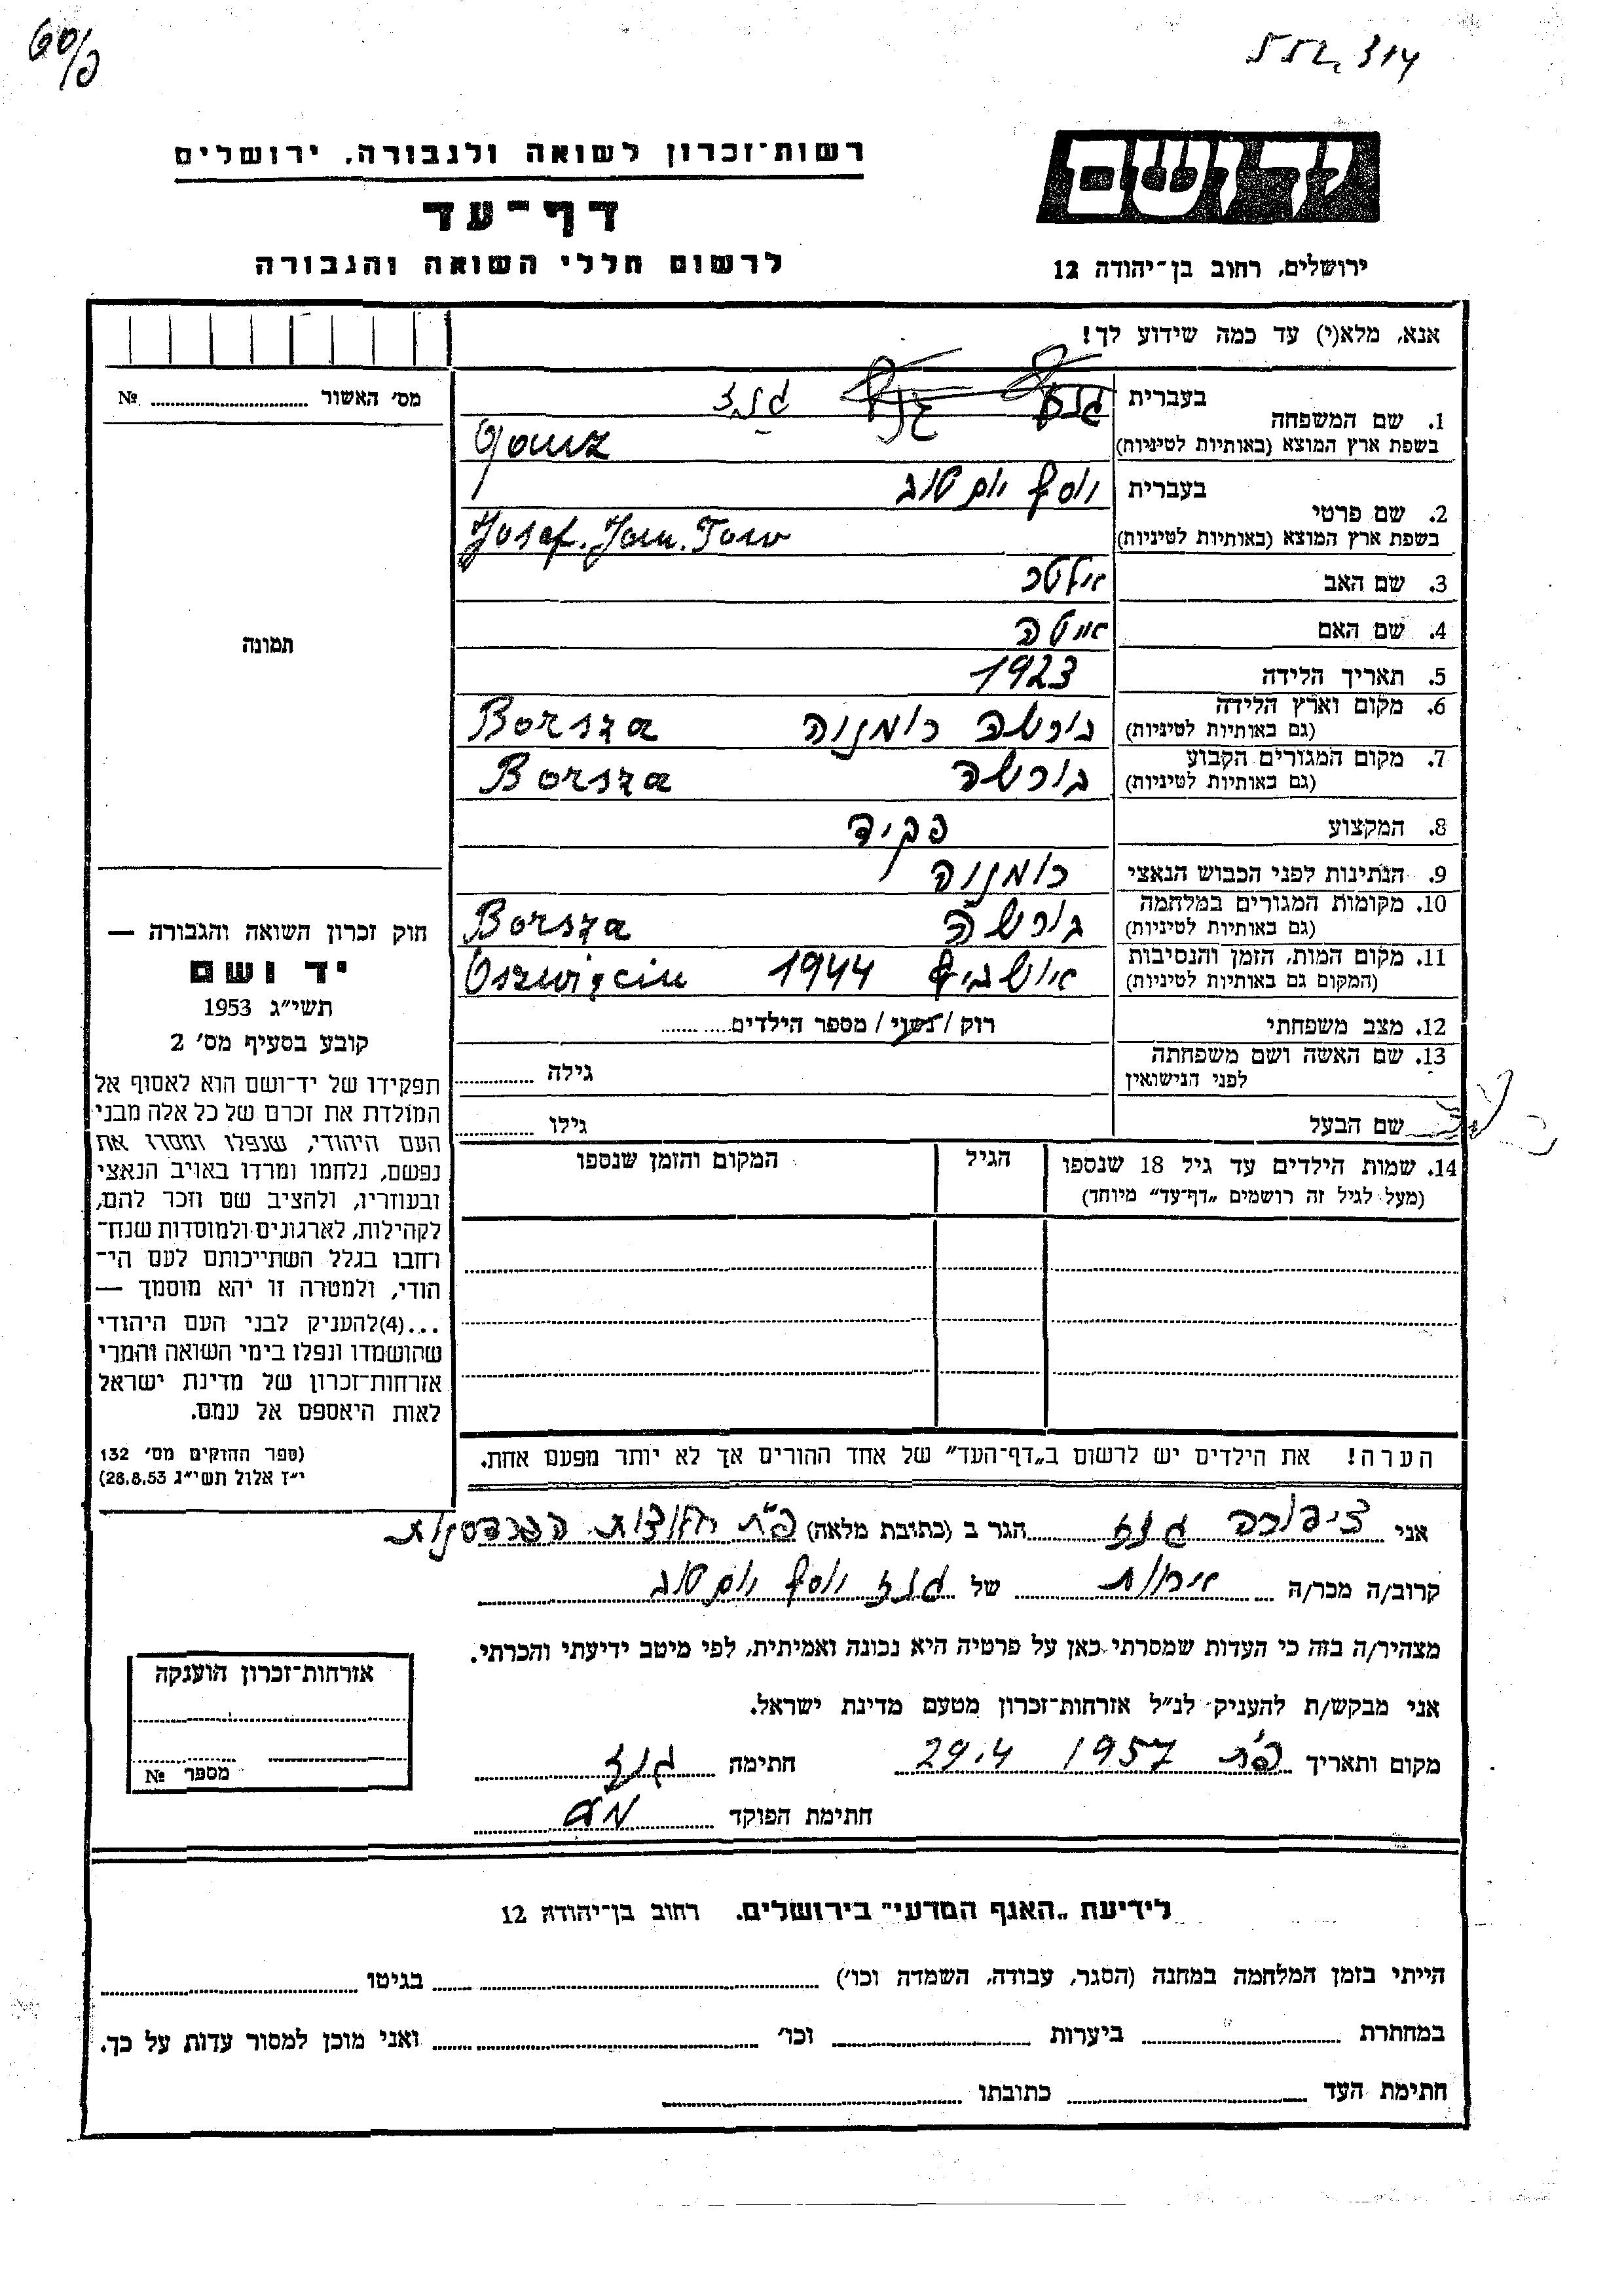 רשות־זכרון לשואה ולגבורה, ירושלים
דף־עד
לרשום חללי השואה והגבורה
יד ושם
ירושלים, רחוב בן־יהודה 12
אנא, מלא(י) עד כמה שידוע לך!
מס׳ האשור № 
1. שם המשפחה בעברית גנז
בשפת ארץ המוצא (באותיות לטיניות) Ganz
2. שם פרטי בעברית יוסף יום טוב
בשפת ארץ המוצא (באותיות לטיניות) Josef. Jom. Tow
3. שם האב אלטר
4. שם האם איטה
5. תאריך הלידה 1923
6. מקום וארץ הלידה בורשה רומניה Borsza
(גם באותיות לטיניות)
7. מקום המגורים הקבוע בורשה Borsza
(גם באותיות לטיניות)
8. המקצוע פקיד
9. הנתינות לפני הכבוש הנאצי רומניה
10. מקומות המגורים במלחמה בורשה Borsza
(גם באותיות לטיניות)
11. מקום המות, הזמן והנסיבות אושביץ 1944 Oszwięcim
(המקום גם באותיות לטיניות)
12. מצב משפחתי רוק / נשוי / מספר הילדים
13. שם האשה ושם משפחתה גילה
לפני הנישואין
שם הבעל גילו
14. שמות הילדים עד גיל 18 שנספו הגיל המקום והזמן שנספו
(מעל לגיל זה רושמים „דף־עד״ מיוחד)
הערה! את הילדים יש לרשום ב„דף־העד״ של אחד ההורים אך לא יותר מפעם אחת.
תמונה
חוק זכרון השואה והגבורה —
יד ושם
תשי״ג 1953
קובע בסעיף מס׳ 2
תפקידו של יד־ושם הוא לאסוף אל
המולדת את זכרם של כל אלה מבני
העם היהודי, שנפלו ומסרו את
נפשם, נלחמו ומרדו באויב הנאצי
ובעוזריו, ולהציב שם וזכר להם,
לקהילות, לארגונים ולמוסדות שנח־
רחבו בגלל השתייכותם לעם הי־
הודי, ולמטרה זו יהא מוסמך —
...(4)להעניק לבני העם היהודי
שהושמדו ונפלו בימי השואה והמרי
אזרחות־זכרון של מדינת ישראל
לאות היאספם אל עמם.
(ספר החוקים מס׳ 132
י״ז אלול תשי״ג 28.8.53)
אני ציפורה גנז הגר ב (כתובת מלאה) פ״ת
קרוב/ה מכר/ה אחות של גנז יוסף יום טוב
מצהיר/ה בזה כי העדות שמסרתי כאן על פרטיה היא נכונה ואמיתית, לפי מיטב ידיעתי והכרתי.
אני מבקש/ת להעניק לנ״ל אזרחות־זכרון מטעם מדינת ישראל.
מקום ותאריך פ״ת 29.4 1957 חתימה גנז
חתימת הפוקד
אזרחות־זכרון הוענקה
מספר №
לידיעת „האגף המדעי״ בירושלים. רחוב בן־יהודה 12
הייתי בזמן המלחמה במחנה (הסגר, עבודה, השמדה וכו׳) בגיטו
במחתרת ביערות וכו׳ ואני מוכן למסור עדות על כך.
חתימת העד כתובתו